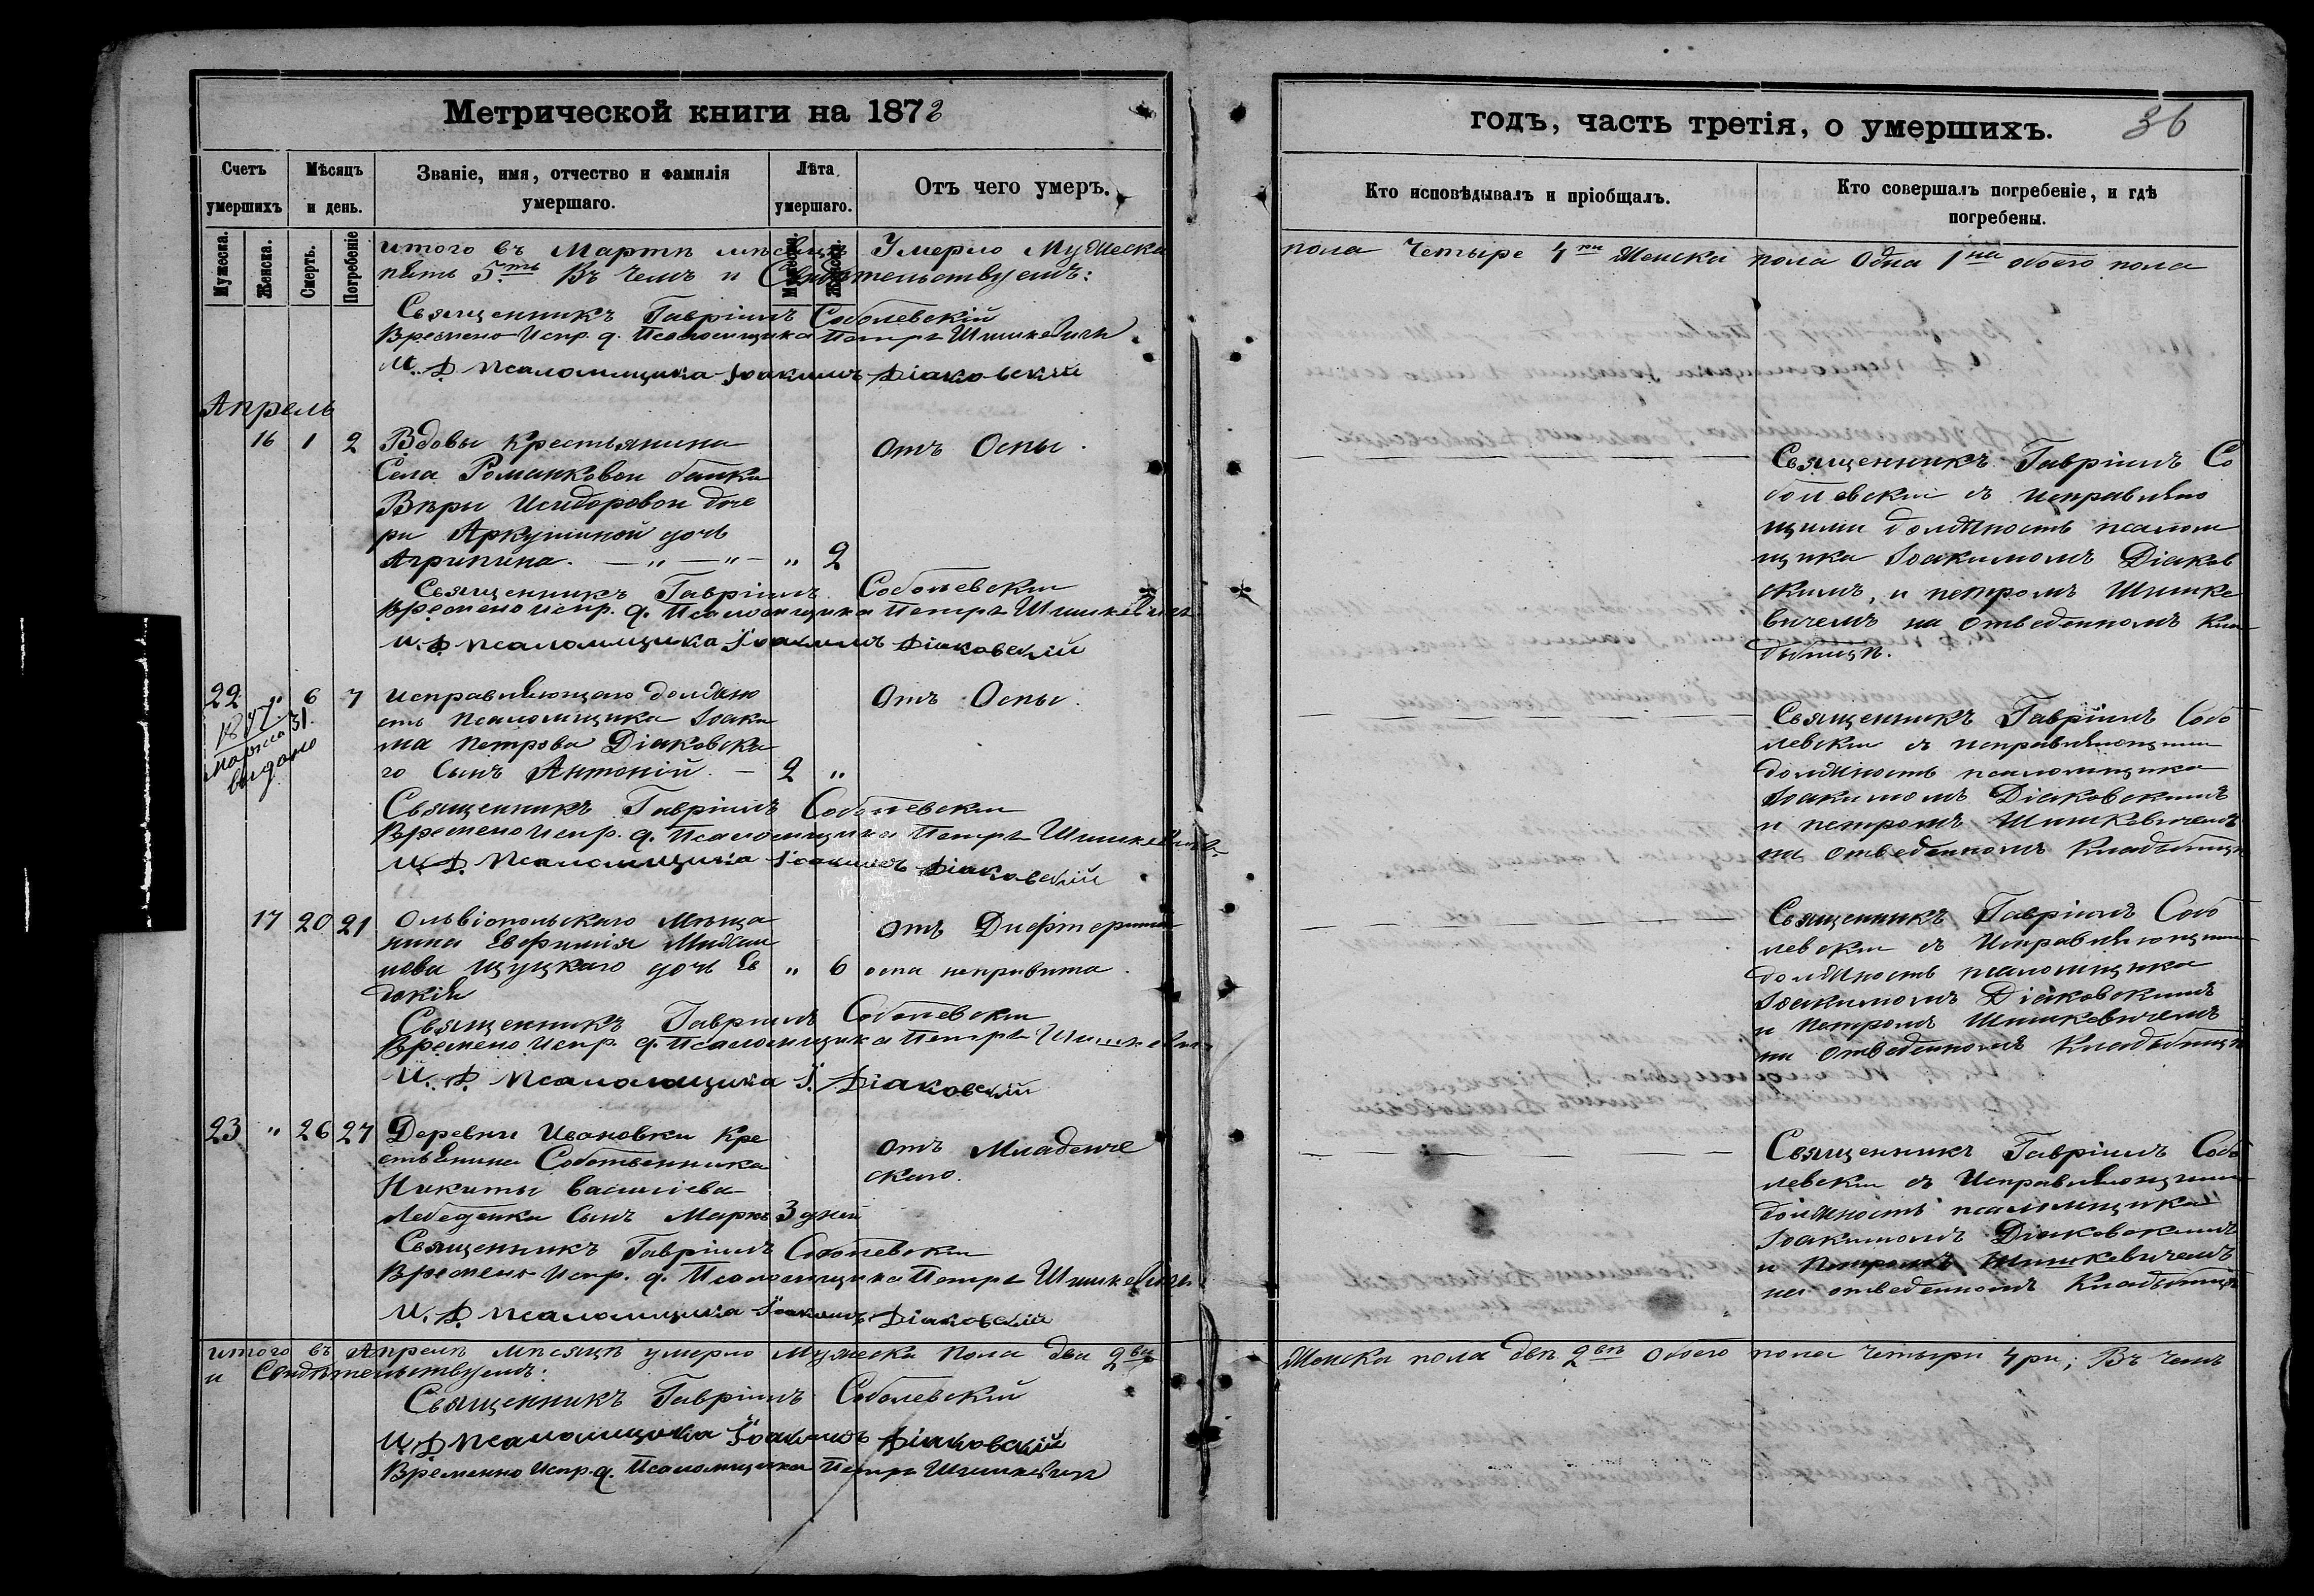 Метрической книги на 1872
Счетъ умершихъ
Мѣсяцъ и день.
Званіе, имя, отчество и фамилія умершаго.
Лѣта умершаго.
Отъ чего умеръ.
Мужеска.
Женска.
Смерть.
Погребеніе
Мужеска.
Женска.
итого въ Мартѣ мѣсяцѣ Умерло Мужеска
пять 5ть Въ чемъ и Свидѣтельствуемъ:
Священникъ Гавріилъ Соболевскій
Временно Испр. д. Псаломщика Петръ Шишкевичъ
И. Д. псаломщика Іоакимъ Діаковскій
Апрель
16 1 2 Вдовы крестьянина отъ Оспы.
Села Романковой балки
Вѣры Исидоровой доче
ри Аркушиной дочь
Агрипина. — " — " — " 2
Священникъ Гавріилъ Соболевскій
Временно испр. д. Псаломщика Петръ Шишкевичъ
И. Д. псаломщика Іоакимъ Діаковскій
22 " 6 7 исправляющаго должно отъ Оспы.
сть псаломщика Іоаки
ма Петрова Діаковска
го сынъ Антоній. — 2 "
марта 31.
выдано
Священникъ Гавріилъ Соболевскій
Временно испр. д. Псаломщика Петръ Шишкевичъ
И. Д. Псаломщика Іоакимъ Діаковскій
17 20 21 Ольвіопольскаго Мѣща отъ Дифтерита
нина Евфимія Михаи
лова Щуцкаго дочь Ев " 6 оспа непривита.
докія
Священникъ Гавріилъ Соболевскій
Временно Испр. д. Псаломщика Петръ Шишкевичъ
И. Д. Псаломщика І. Діаковскій
23 " 26 27 Деревни Ивановки Кре отъ Младенче
стьянина Собственника скаго.
Никиты Василіева
Лебеденка сынъ Маркъ 3 дней
Священникъ Гавріилъ Соболевскій
Временно Испр. д. Псаломщика Петръ Шишкевичъ
И. Д. Псаломщика Іоакимъ Діаковскій
итого въ Апрелѣ мѣсяцѣ умерло Мужеска пола два 2ва
и Свидѣтельствуемъ:
Священникъ Гавріилъ Соболевскій
И. Д. псаломщика Іоакимъ Діаковскій
Временно Испр. д. Псаломщика Петръ Шишкевичъ
годъ, часть третія, о умершихъ. 36
Кто исповѣдывалъ и пріобщалъ.
Кто совершалъ погребеніе, и гдѣ
погребены.
пола Четыре 4ри Женска пола Одна 1на обоего пола
Священникъ Гавріилъ Со
болевскій съ исправляю
щими должность псалом
щика Іоакимомъ Діаков
скимъ, и петромъ Шишке
вичемъ на отведенномъ Кла
дбищѣ.
Священникъ Гавріилъ Собо
левскій съ исправляющими
должность псаломщика
Іоакимомъ Діаковскимъ
и петромъ Шишкевичемъ
на отведенномъ Кладбищѣ
Священникъ Гавріилъ Собо
левскій съ Исправляющими
должность псаломщика
Іоакимомъ Діаковскимъ
и Петромъ Шишкевичемъ
на отведенномъ Кладбищѣ
Священникъ Гавріилъ Собо
левскій съ Исправляющими
должность псаломщика
Іоакимомъ Діаковскимъ
и Петромъ Шишкевичемъ
на отведенномъ Кладбищѣ
Женска пола двѣ 2вѣ Обоего пола четыри 4ри; Въ чемъ